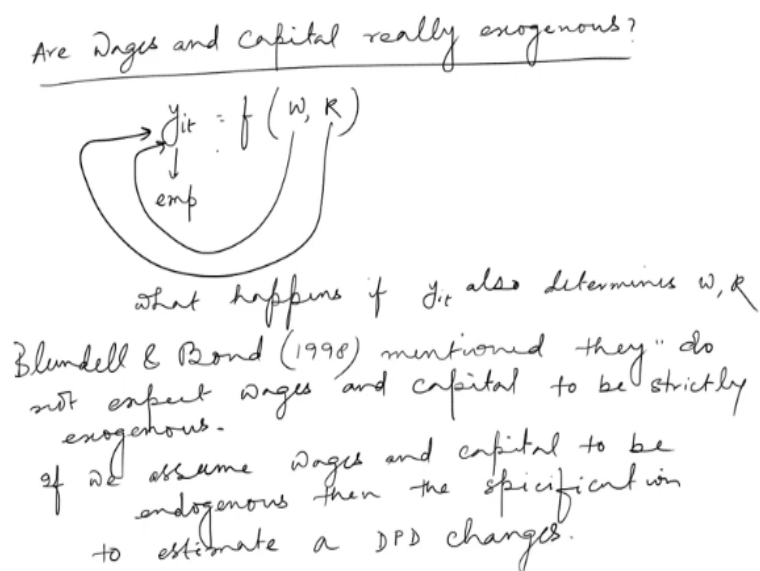 Are Wages and Capital really exogenous?
yit = f (W, R)
emp
What happens if yit also determines W, R
Blundell & Bond (1998) mentioned they "do
not expect wages and capital to be strictly
exogenous.
If we assume wages and capital to be
endogenous then the specification
to estimate a DPD changes.